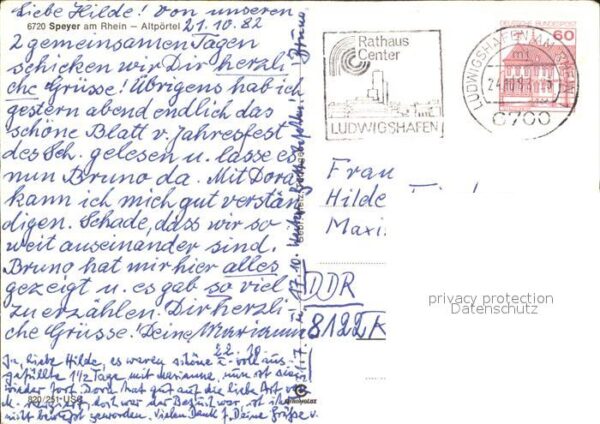 Liebe Hilde! Von unseren
6720 Speyer am Rhein – Altpörtel
21.10.82
2 gemeinsamen Tagen
schicken wir Dir herzli
che Grüsse! Übrigens hab ich
gestern abend endlich das
schöne Blatt v. Jahresfest
des Sch. gelesen u. lasse es
nun Bruno da. Mit Dora
kann ich mich gut verstän
digen. Schade, dass wir so
weit auseinander sind.
Bruno hat mir hier alles
gezeigt u. es gab so viel
zu erzählen. Dir herzli
che Grüsse! Deine Marianne
22. 10.
Ja, liebe Hilde, es waren schöne voll aus-
gefüllte 1½ Tage mit Marianne, nun ist sie
wieder fort. Dora hat gut auf die liebe Art von
M. reagiert, doch war der Besuch war, ist ihr
nicht bewusst geworden. Vielen Dank f. Deine Grüße v.
17.10.
Bruno
820/251 USC
Rathaus
Center
LUDWIGSHAFEN
DEUTSCHE BUNDESPOST
60
LUDWIGSHAFEN AM RHEIN
6700
Frau
Hilde
Maxi
DDR
8122
privacy protection
Datenschutz